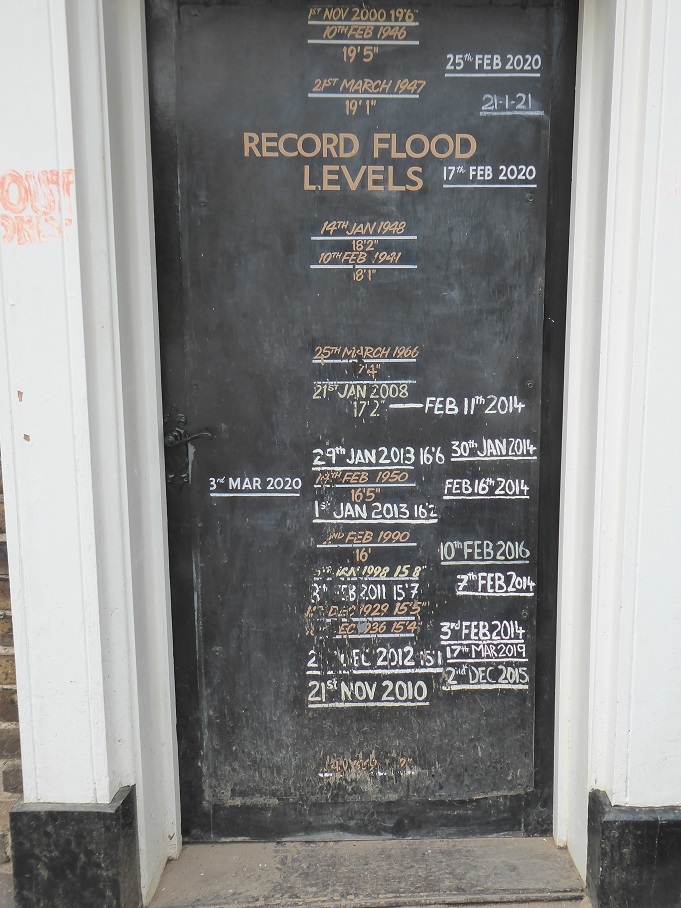 1ST NOV 2000 19'6"
10TH FEB 1946
19'5"
25th FEB 2020
21ST MARCH 1947
19'1"
21-1-21
RECORD FLOOD
LEVELS
17th FEB 2020
OUT
14TH JAN 1948
18'2"
10TH FEB 1941
18'1"
25TH MARCH 1966
21ST JAN 2008
17'2"
FEB 11th 2014
29th JAN 2013 16'6
30th JAN 2014
3rd MAR 2020
FEB 1950
16'5"
FEB 16th 2014
1st JAN 2013 16'2
FEB 1990
16'
10th FEB 2016
1998 15'8"
7th FEB 2014
2011 15'7
DEC 1929 15'5"
15'4"
3rd FEB 2014
DEC 2012 15'1
17th MAR 2019
21st NOV 2010
2nd DEC 2015